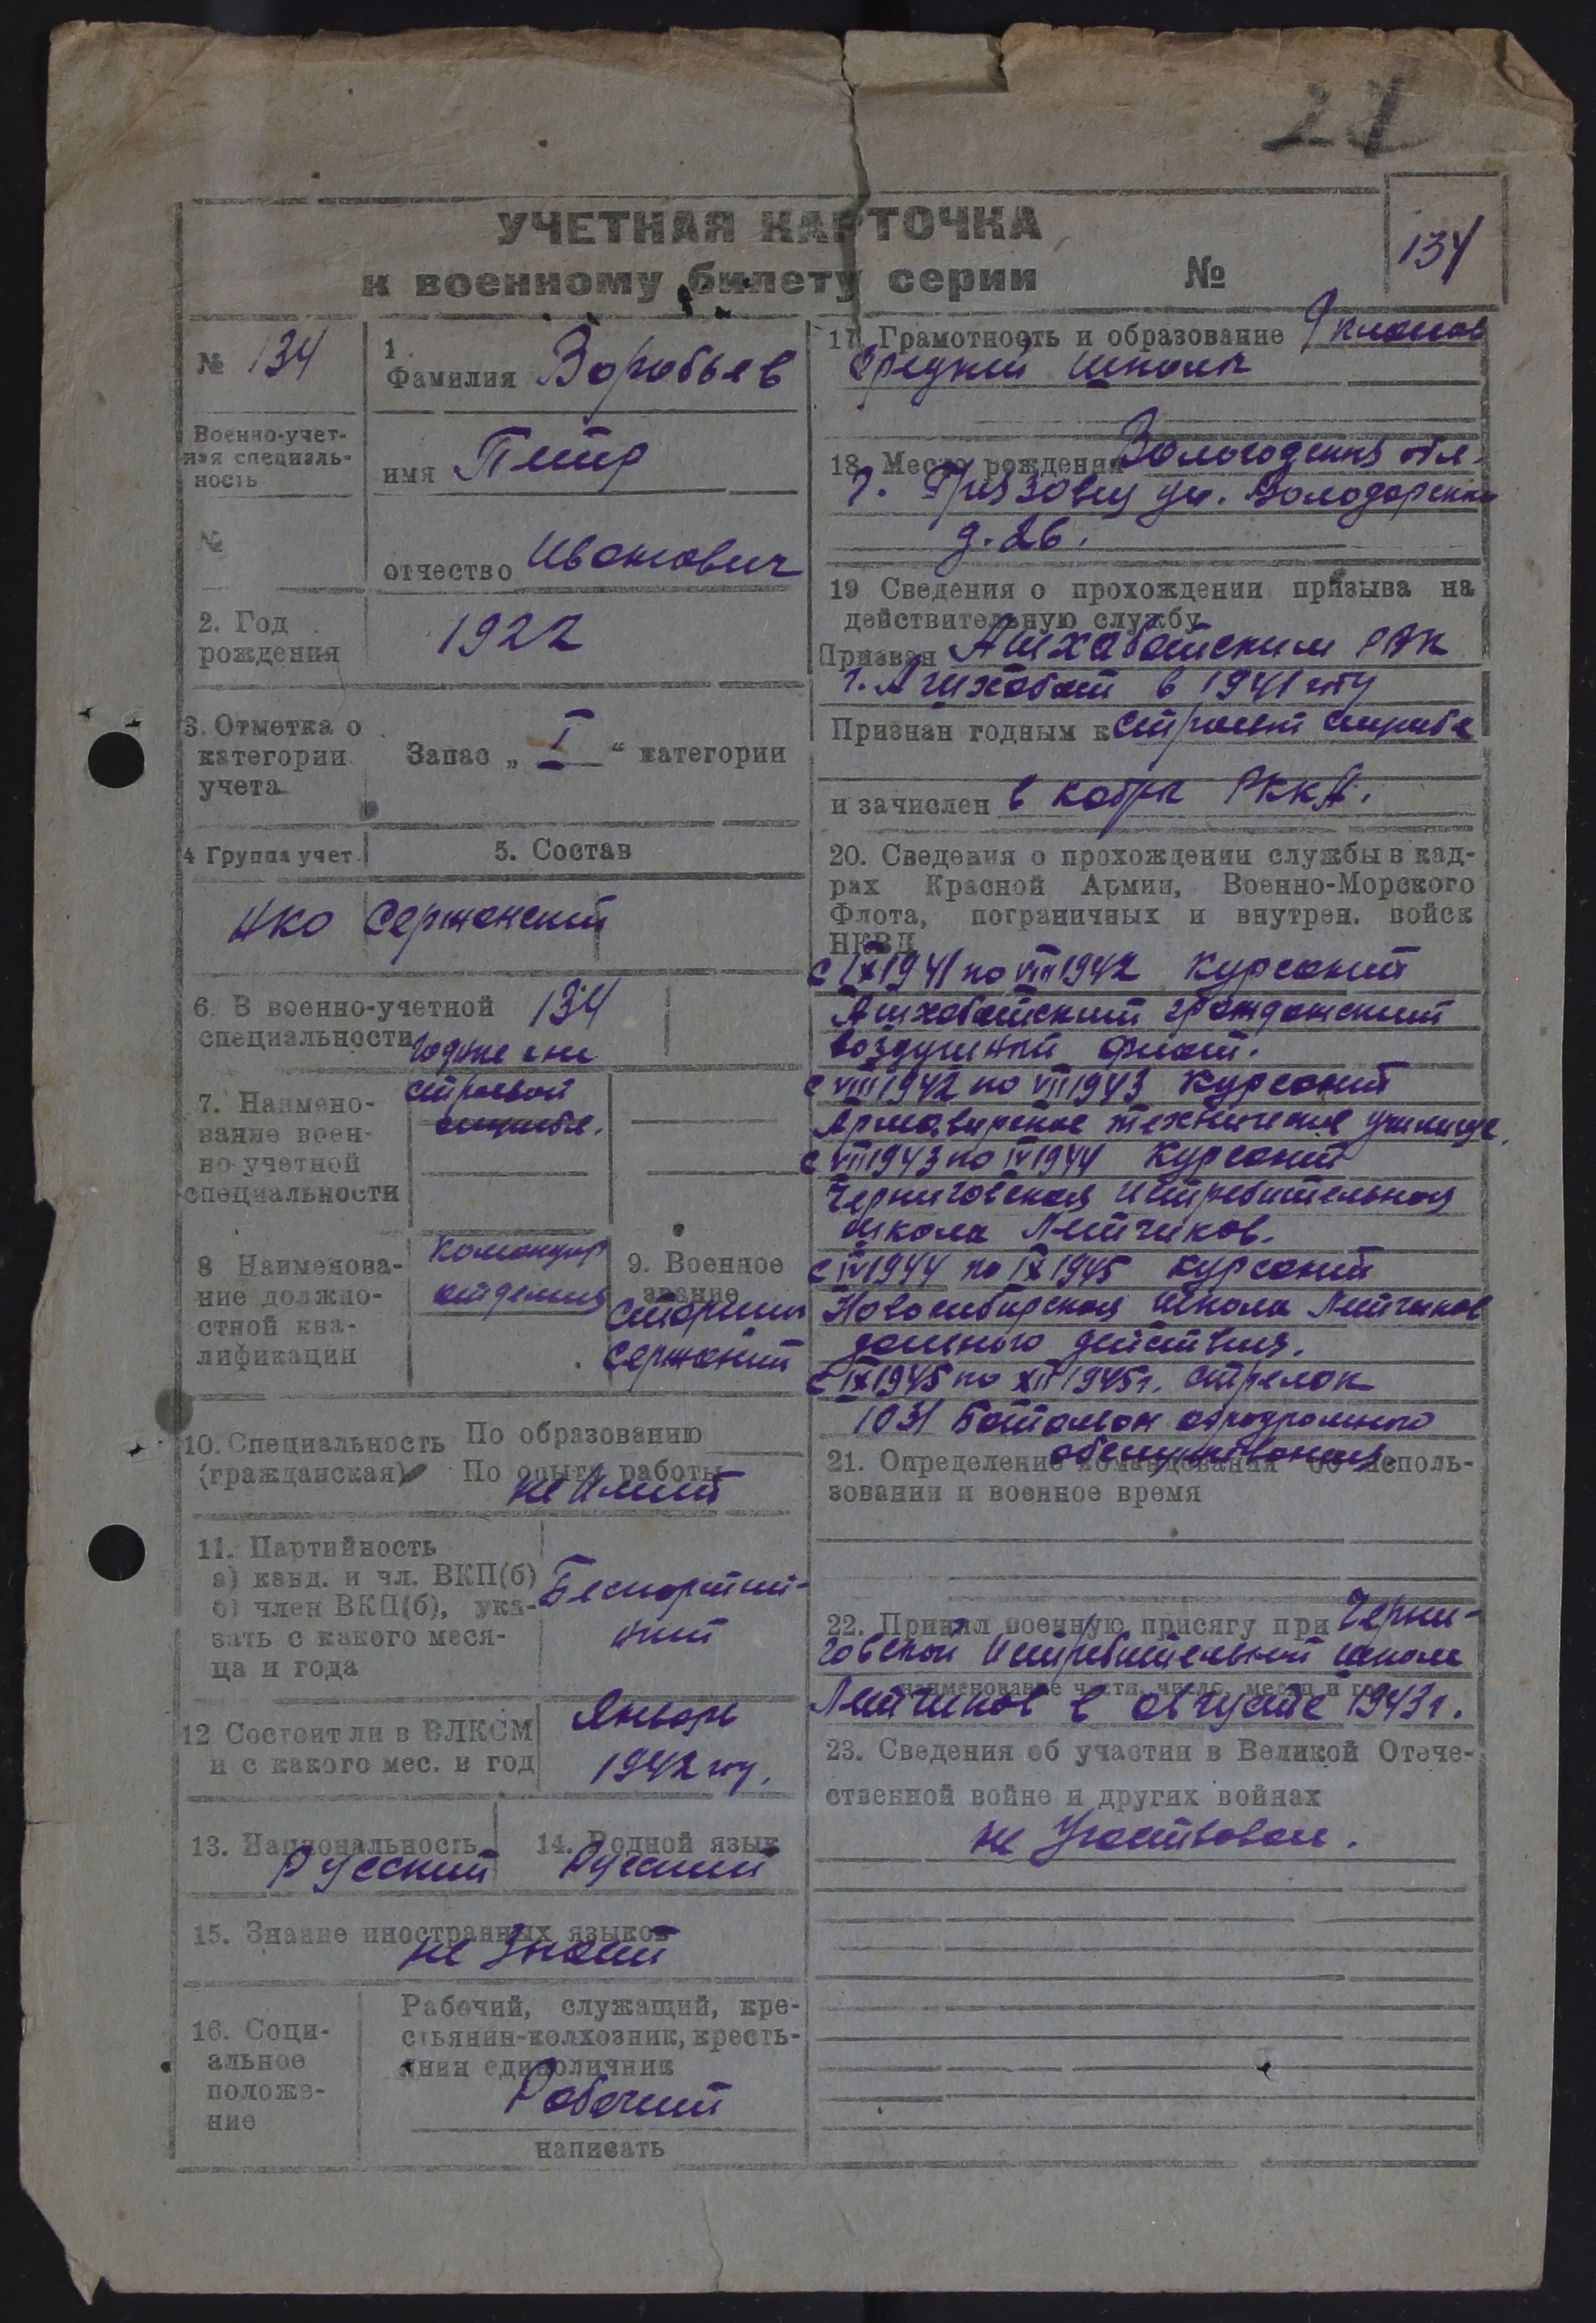 21
УЧЕТНАЯ КАРТОЧКА
к военному билету серии №
134
№ 134
Военно-учет-
ная специаль-
ность
№
1.
Фамилия Воробьев
имя Петр
отчество Иванович
2. Год
рождения
1922
3. Отметка о
категории
учета
Запас „ I “ категории
4 Группа учет.
5. Состав
НКО
Сержанский
6. В военно-учетной
специальности
134
7. Наимено-
вание воен-
но-учетной
специальности
годные
строевой
службе.
8 Наименова-
ние должно-
стной ква-
лификации
Командир
отделения
9. Военное
звание
Старший
Сержант
10. Специальность
(гражданская)
По образованию
По опыту работы
не имеет
11. Партийность
а) канд. и чл. ВКП(б)
б) член ВКП(б), ука-
зать с какого меся-
ца и года
Беспартий-
ный
12 Состоит ли в ВЛКСМ
и с какого мес. и год
Январь
1942 году.
13. Национальность
Русский
14. Родной язык
Русский
15. Знание иностранных языков
не знает
16. Соци-
альное
положе-
ние
Рабочий, служащий, кре-
стьянин-колхозник, кресть-
янин единоличник
Рабочий
написать
17. Грамотность и образование 9 классов
средней школы
18. Место рождения Вологодская обл.
г. Грязовец ул. Володарского
д. 26.
19 Сведения о прохождении призыва на
действительную службу
Призван Ашхабатским РВК
г. Ашхабат в 1941 году
Признан годным к строевой службе
и зачислен в кадры РККА.
20. Сведения о прохождении службы в кад-
рах Красной Армии, Военно-Морского
Флота, пограничных и внутрен. войск
НКВД
с IX 1941 по VIII 1942 Курсант
Ашхабатский гражданский
воздушный флот.
с VIII 1942 по VIII 1943 Курсант
Армавирское техническое училище.
с VIII 1943 по IV 1944 Курсант
Черниговская истребительная
школа Летчиков.
с IV 1944 по IX 1945 курсант
Новосибирская школа Летчиков
дальнего действия.
с IX 1945 по XII 1945 г. стрелок
1031 Батальон аэродромного
обслуживания.
21. Определение командования об исполь-
зовании и военное время
22. Принял военную присягу при Черни-
говской Истребительной школе
наименование части, число, месяц и год
Летчиков в августе 1943 г.
23. Сведения об участии в Великой Отече-
ственной войне и других войнах
не участвовал.